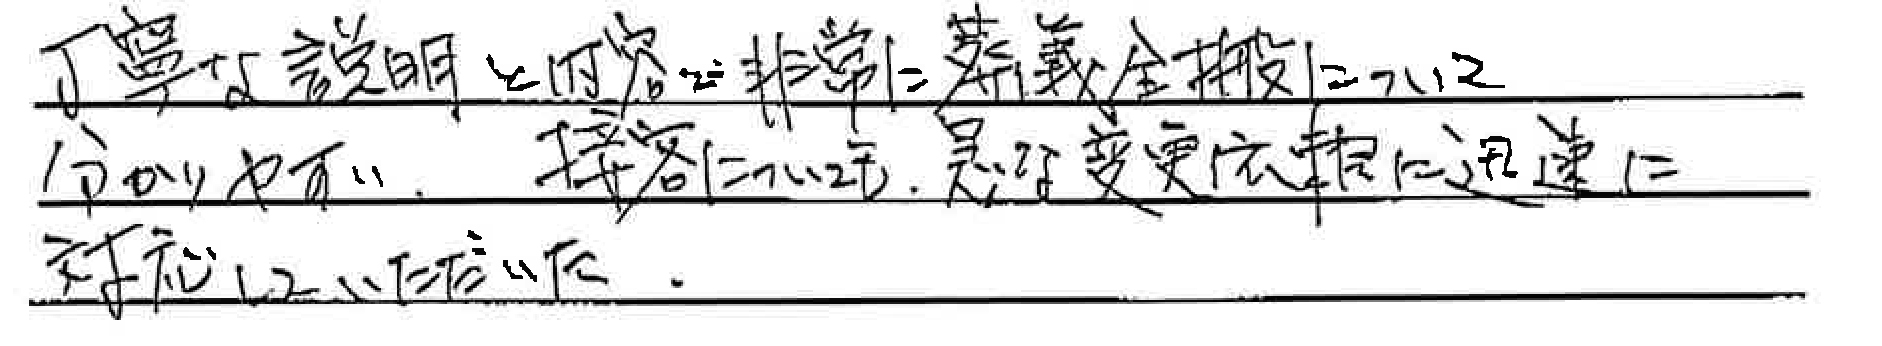 丁寧な説明と内容で非常に葬義全般について
分かりやすい.　接客についても.急な変更依頼に迅速に
対応していただいた.